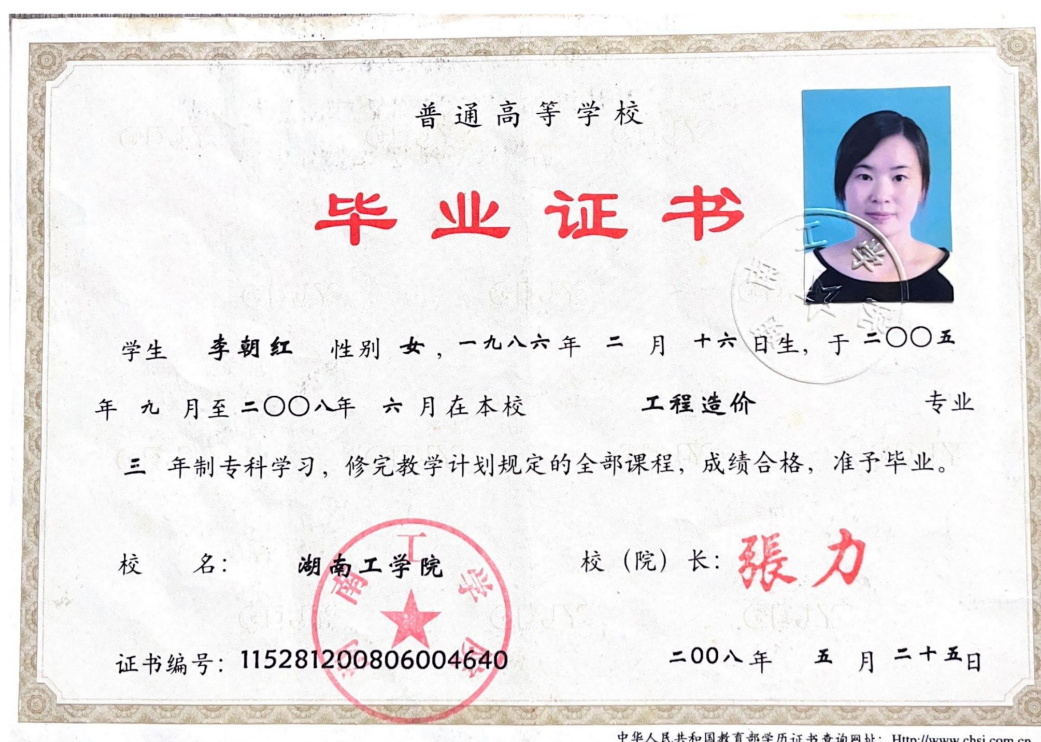 普通高等学校
毕业证书
学生 李朝红 性别 女，一九八六年 二 月 十六日生，于二〇〇五
年 九 月至二〇〇八年 六 月在本校 工程造价 专业
三 年制专科学习，修完教学计划规定的全部课程，成绩合格，准予毕业。
校 名： 湖南工学院 校（院）长：張力
湖南工学院
证书编号：115281200806004640 二00八年 五 月 二十五日
中华人民共和国教育部学历证书查询网址：Http://www.chsi.com.cn